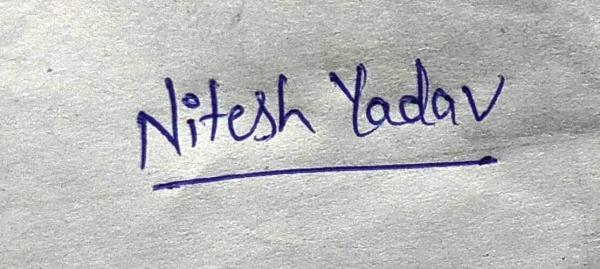 Nitesh Yadav